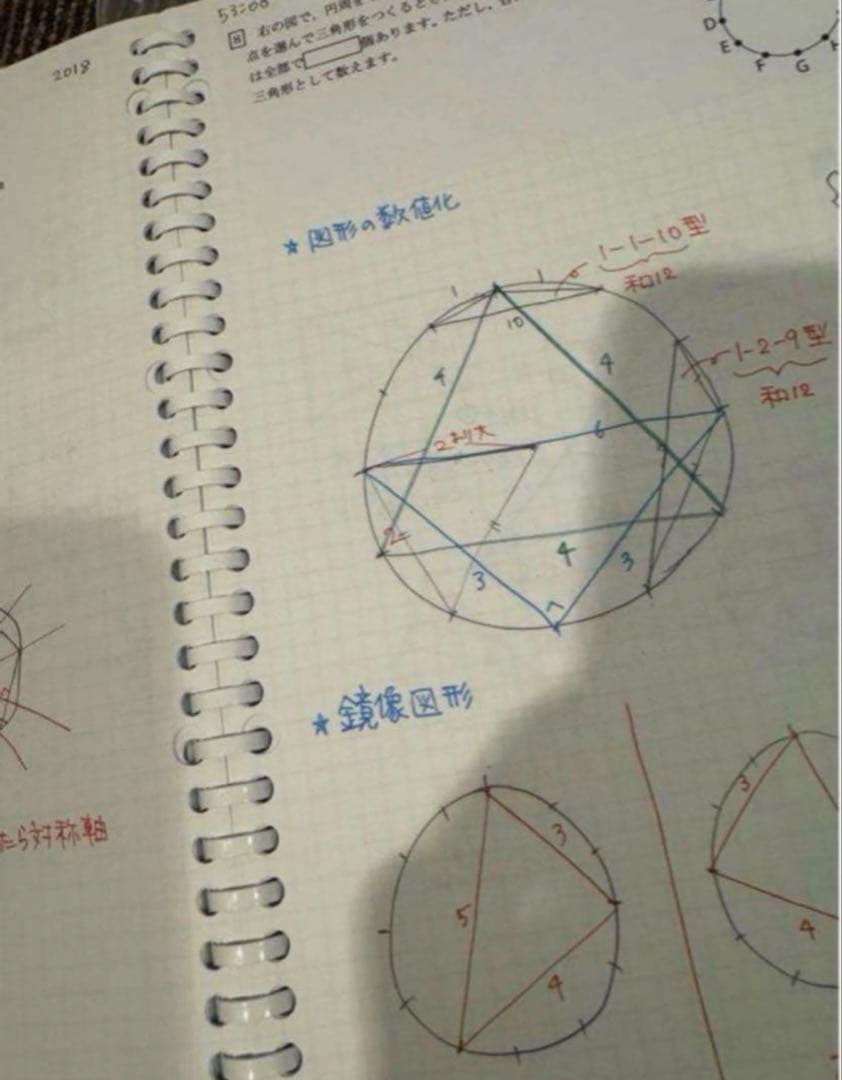 53:00
2018
8 右の図で、円周を
点を選んで三角形をつくると
は全部で 個あります。ただし、
三角形として数えます。
D
E
F
G
H
★図形の数値化
1-1-10型
和12
1
1
10
1-2-9型
和12
4
4
2より大
6
2
3
4
3
★鏡像図形
たら対称軸
3
5
4
3
4